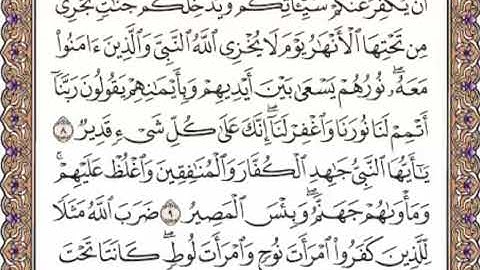 أَن يُكَفِّرَ عَنكُمْ سَيِّـَٔاتِكُمْ وَيُدْخِلَكُمْ جَنَّٰتٍ تَجْرِى
مِن تَحْتِهَا ٱلْأَنْهَٰرُ يَوْمَ لَا يُخْزِى ٱللَّهُ ٱلنَّبِىَّ وَٱلَّذِينَ ءَامَنُوا۟
مَعَهُۥ ۖ نُورُهُمْ يَسْعَىٰ بَيْنَ أَيْدِيهِمْ وَبِأَيْمَٰنِهِمْ يَقُولُونَ رَبَّنَآ
أَتْمِمْ لَنَا نُورَنَا وَٱغْفِرْ لَنَآ ۖ إِنَّكَ عَلَىٰ كُلِّ شَىْءٍ قَدِيرٌ ٨
يَٰٓأَيُّهَا ٱلنَّبِىُّ جَٰهِدِ ٱلْكُفَّارَ وَٱلْمُنَٰفِقِينَ وَٱغْلُظْ عَلَيْهِمْ ۚ
وَمَأْوَىٰهُمْ جَهَنَّمُ ۖ وَبِئْسَ ٱلْمَصِيرُ ٩ ضَرَبَ ٱللَّهُ مَثَلًا
لِّلَّذِينَ كَفَرُوا۟ ٱمْرَأَتَ نُوحٍ وَٱمْرَأَتَ لُوطٍ ۖ كَانَتَا تَحْتَ